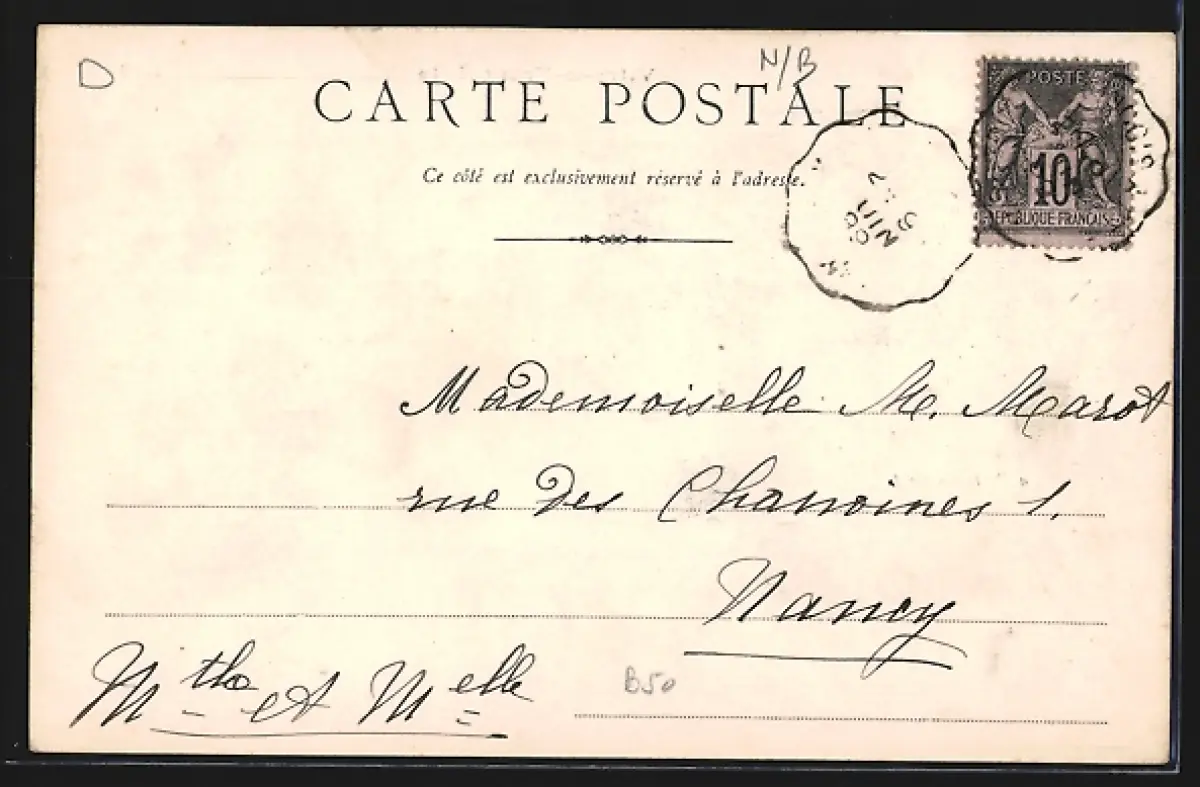 D
N/B
CARTE POSTALE
POSTE
10
REPUBLIQUE FRANÇAISE
Ce côté est exclusivement réservé à l'adresse.
JUIN
Mademoiselle M. Marot
rue des Chanoines 1.
Nancy
Mtho et Melle
B50